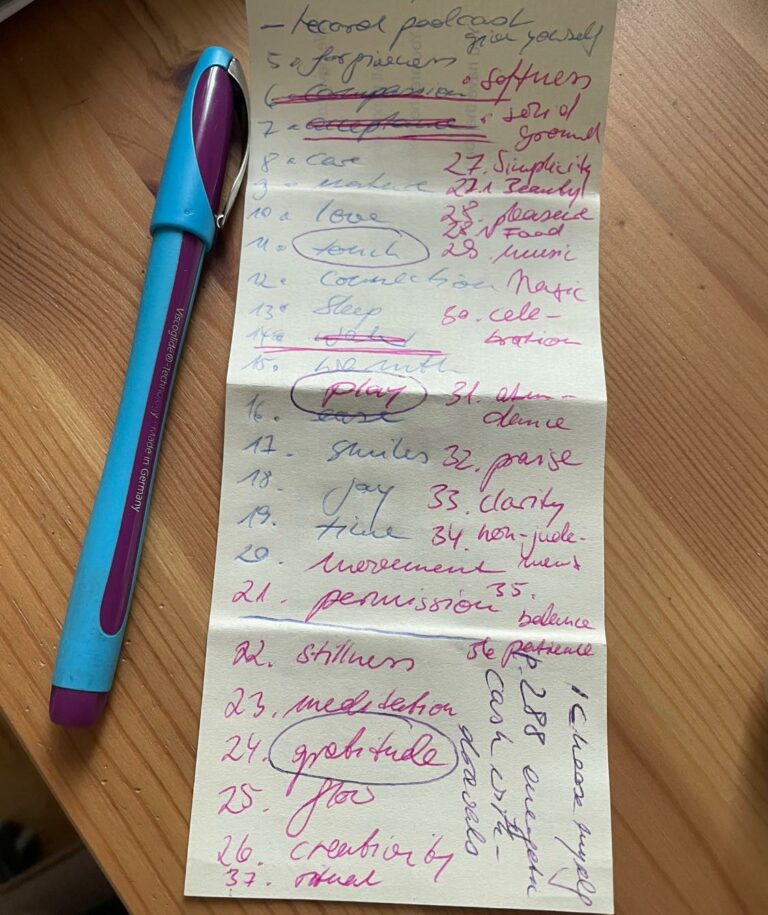 - record podcast
give yourself
5. forgiveness
• softness
6. compassion
7. acceptance
• solid
ground
8. care
27. Simplicity
9. nature
27.1 Beauty
10. love
28. pleasure
28.1 Food
11. touch
29. music
12. connection
Magic
13. Sleep
30. cele-
bration
14.
15. warmth
play
31. abun-
dance
16. ease
17. smiles
32. praise
18. joy
33. clarity
19. time
34. non-jude-
ment
20. movement
21. permission
35.
balance
22. stillness
36 patience
23. meditation
24. gratitude
25. flow
26. creativity
37. ritual
I choose myself
p. 288 energetic
cash with-
drawals
Viscoglide®-Technology · Made in Germany